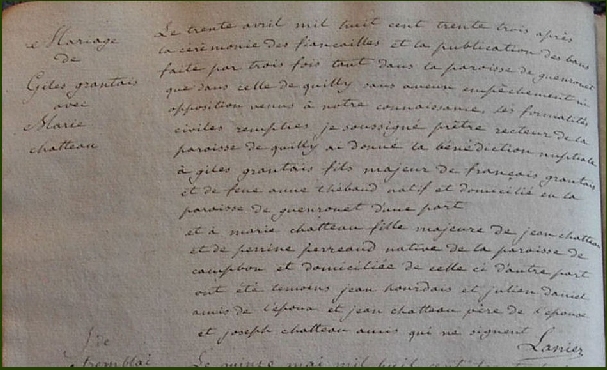 e Mariage
de
Giles grantais
avec
Marie
chatteau
Le trente avril mil huit cent trente trois après
la cérémonie des fiançailles et la publication des bans
faite par trois fois tant dans la paroisse de guenrouet
que dans celle de quilly sans aucun empêchement ni
opposition venus à notre connaissance, les formalités
civiles remplies je soussigné prêtre recteur de la
paroisse de quilly ai donné la bénédiction nuptiale
à giles grantais fils majeur de françois grantais
et de feue anne thébaud natif et domicilié en la
paroisse de guenrouet d'une part
et à marie chatteau fille majeure de jean chatteau
et de perrine perreaud native de la paroisse de
campbon et domiciliée de celle ci d'autre part
ont été temoins jean hourdais et julien daniel
amis de l'epoux et jean chatteau père de l'epouse
et joseph chatteau amis qui ne signent
Lanier
de
Tremblai
Le quinze mai mil huit cent